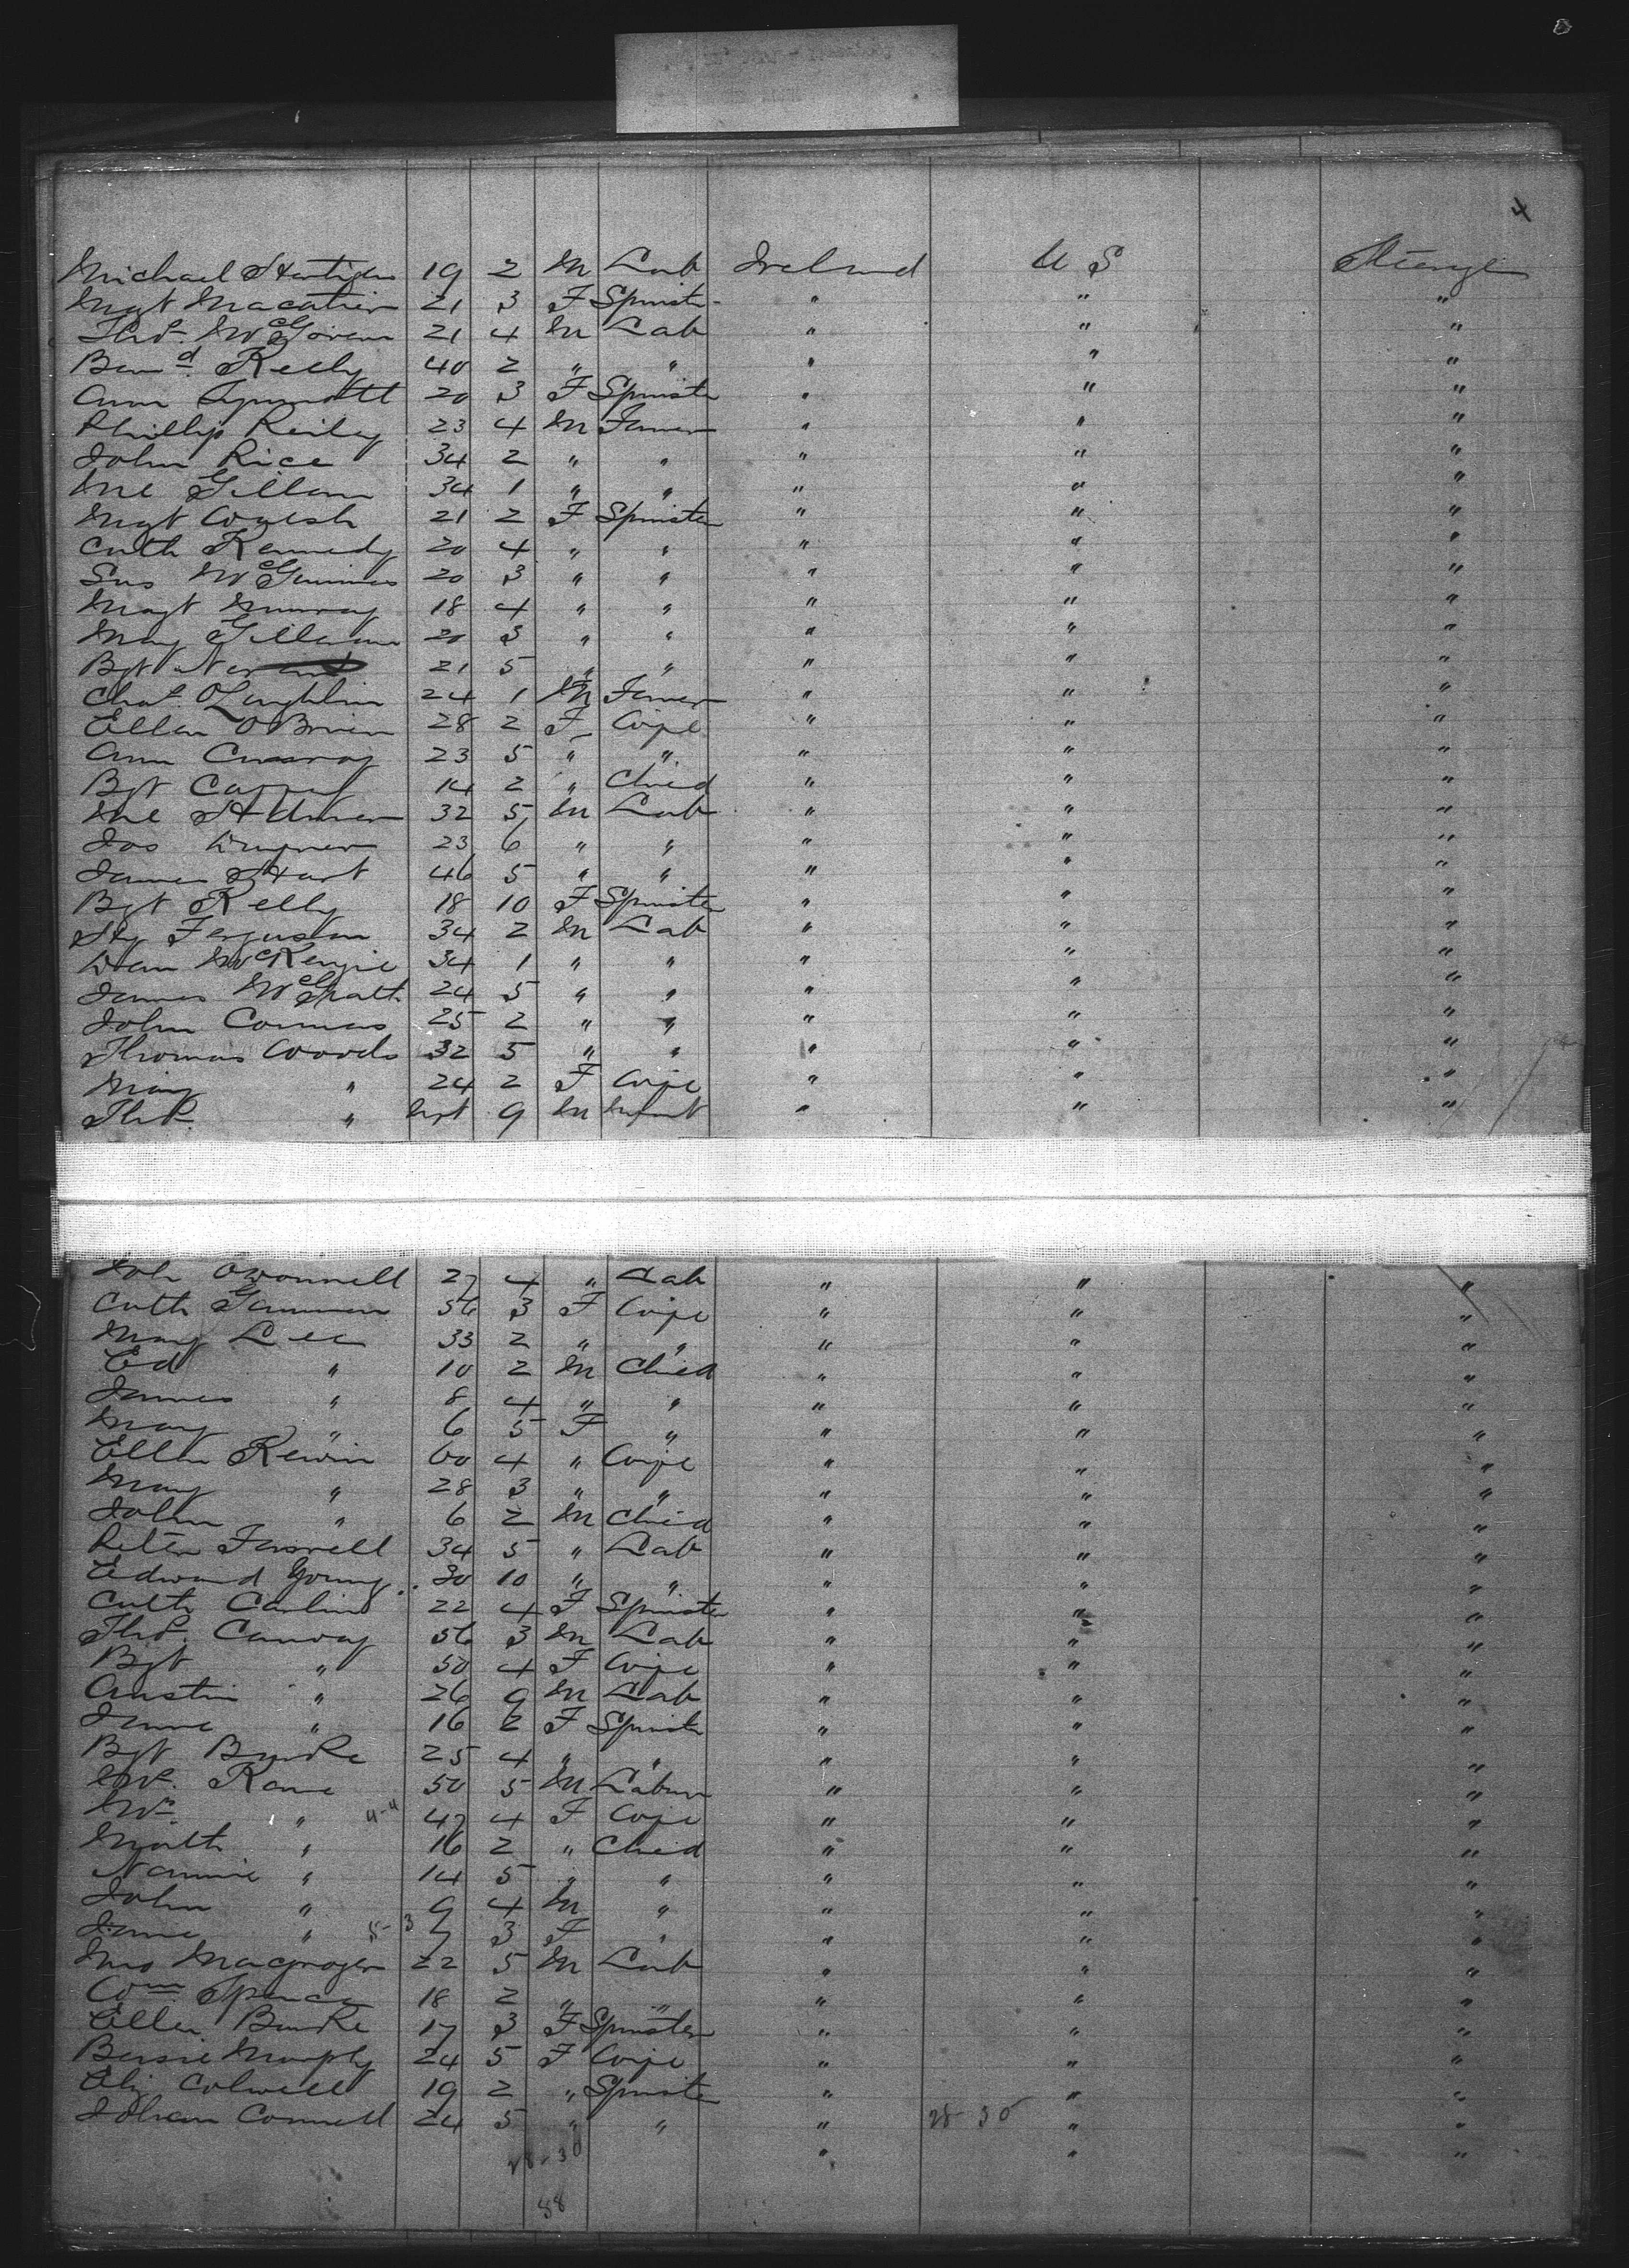 4
Michael Hartigan 19 2 M Lab Ireland U S Steerage
Mgt 21 3 F Spinster " " "
Thos. McGovern 21 4 M Lab " " "
Bernd. Kelly 40 2 " " " " "
Ann 20 3 F Spinster " " "
Phillip Reiley 23 4 M Farmer " " "
John Rice 34 2 " " " " "
Ml 34 1 " " " " "
Mgt Walsh 21 2 F Spinster " " "
Cath Kennedy 20 4 " " " " "
Sus McGuinness 20 3 " " " " "
Magt Murray 18 4 " " " " "
Mary 20 3 " " " " "
Bgt 21 5 " " " " "
Chas. O'Laughlin 24 1 M Farmer " " "
Ellen O'Brien 28 2 F Wife " " "
Ann 23 5 " " " " "
Bgt 14 2 " Child " " "
Ml 32 5 M Lab " " "
Jos 23 6 " " " " "
James Hart 46 5 " " " " "
Bgt Kelly 18 10 F Spinster " " "
Hy Ferguson 34 2 M Lab " " "
Dan McKenzie 34 1 " " " " "
James McGrath 24 5 " " " " "
John 25 2 " " " " "
Thomas Woods 32 5 " " " " "
Mary " 24 2 F Wife " " "
Thos. " Inft 9 M Infant " " "
Joh O'Donnell 27 4 " Lab " " "
Cath 56 3 F Wife " " "
Mary Lee 33 2 " " " " "
Ed " 10 2 M Child " " "
James " 8 4 " " " " "
Mary " 6 5 F " " " "
Ellen Kewin 60 4 " Wife " " "
Mary " 28 3 " " " " "
John " 6 2 M Child " " "
Peter Farrell 34 5 " Lab " " "
Edward Young 30 10 " " " " "
Cath Carlin 22 4 F Spinster " " "
Thos. Conway 56 3 M Lab " " "
Bgt " 50 4 F Wife " " "
Austin " 26 9 M Lab " " "
Jane " 16 2 F Spinster " " "
Bgt Burke 25 4 " " " " "
Kane 50 5 M Labour " " "
Mrs " 4-4 47 4 F Wife " " "
" 16 2 " Child " " "
Nannie " 14 5 " " " " "
John " 9 4 M " " " "
Jane " 8-3 7 3 F " " " "
22 5 M Lab " " "
Wm Spence 18 2 " " " " "
Ellen Burke 17 3 F Spinster " " "
Bessie Murphy 24 5 F Wife " " "
Eliz Colwell 19 2 " Spinster " " "
Johan Connell 24 5 " " " 28-30 " "
28-30 " " "
58